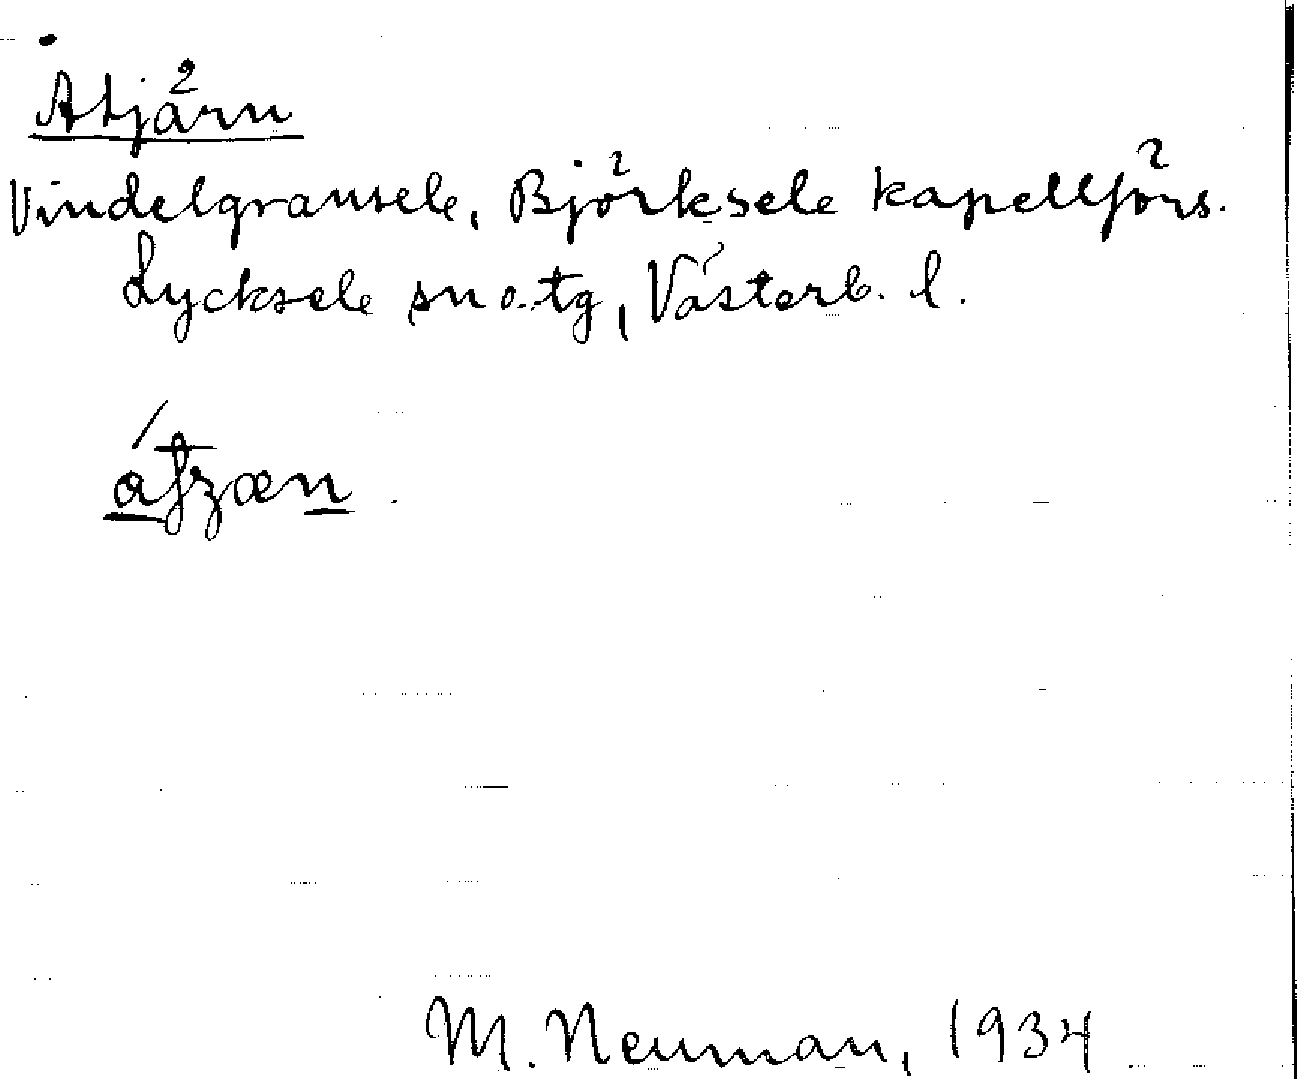 Atjärn
Vindelgransele, Björksele kapellförs.
Lycksele sn o. tg, Västerb. l.
M. Neuman, 1934